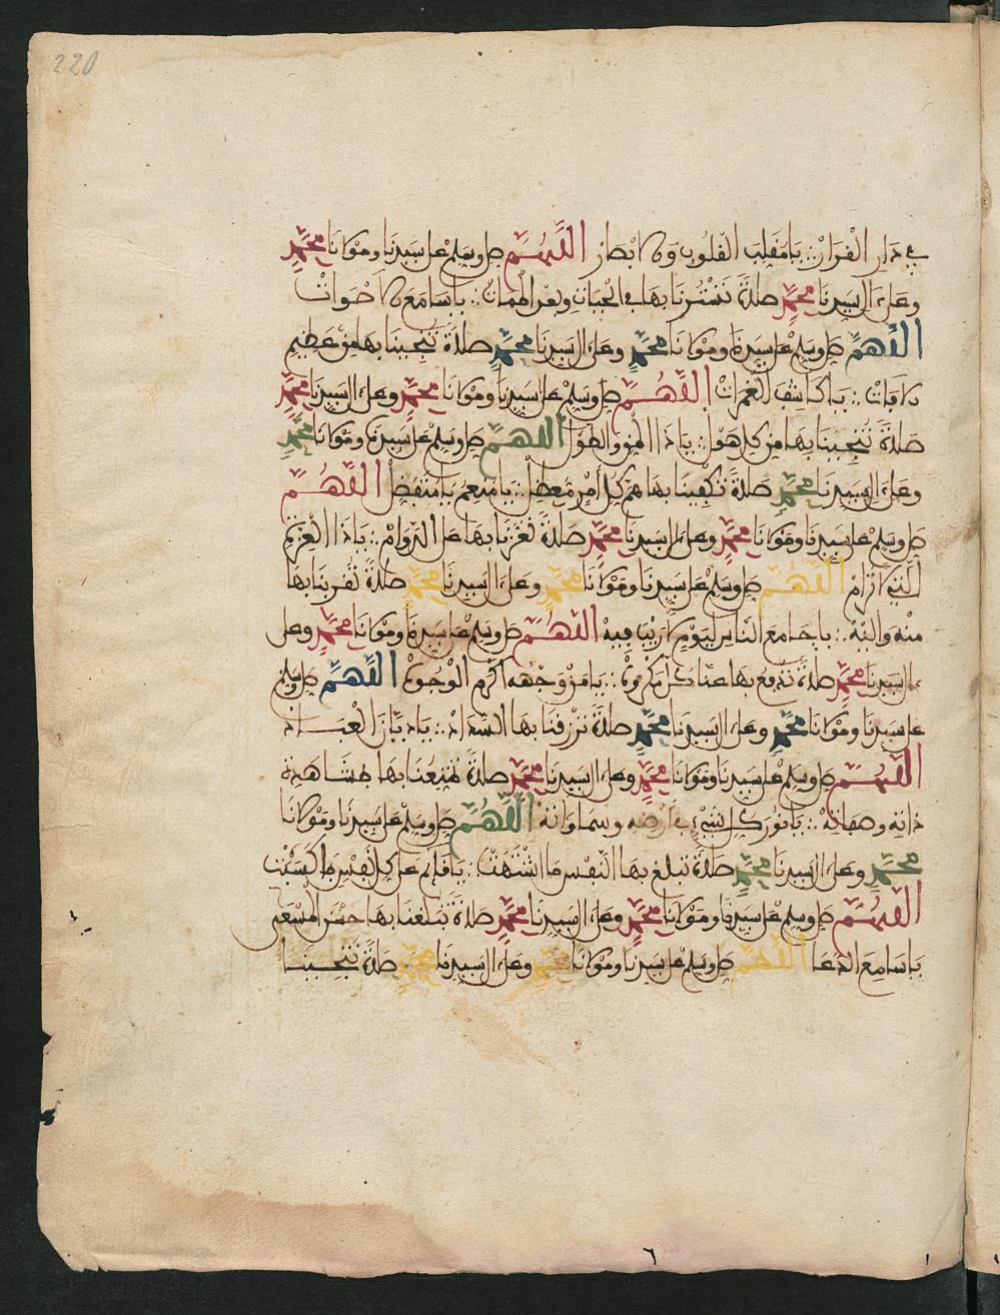 220
في دار القرار ∴ يا مقلب القلوب والابصار اللهم صل وسلم على سيدنا ومولانا محمد
وعلى ءال سيدنا محمد صلاة تسترنا بها في الحيات وبعد الممات ∴ يا سامع الاصوات
اللهم صل وسلم على سيدنا ومولانا محمد وعلى ءال سيدنا محمد صلاة تنجينا بها من عظيم
الافات ∴ يا كاشف الغمرات اللهم صل وسلم على سيدنا ومولانا محمد وعلى ءال سيدنا محمد
صلاة تنجينا بها من كل هول ∴ يا ذا المن والطول اللهم صل وسلم على سيدنا ومولانا محمد
وعلى ءال سيدنا محمد صلاة تكفينا بها هم كل امر معضل ∴ يا منعم يا متفضل اللهم
صل وسلم على سيدنا ومولانا محمد وعلى ءال سيدنا محمد صلاة تعزنا بها على الدوام ∴ يا ذا العز
الذي لا يرام اللهم صل وسلم على سيدنا ومولانا محمد وعلى ءال سيدنا محمد صلاة تقربنا بها
منه واليه ∴ يا جامع الناس ليوم لا ريب فيه اللهم صل وسلم على سيدنا ومولانا محمد وعلى
ءال سيدنا محمد صلاة تدفع بها عنا كل مكروه ∴ يا من وجهه اكرم الوجوه اللهم صل وسلم
على سيدنا ومولانا محمد وعلى ءال سيدنا محمد صلاة ترزقنا بها السداد ∴ يا ديان العباد
اللهم صل وسلم على سيدنا ومولانا محمد وعلى ءال سيدنا محمد صلاة تمتعنا بها بمشاهدة
ذاته وصفاته ∴ يا نور كل شيء في ارضه وسماواته اللهم صل وسلم على سيدنا ومولانا
محمد وعلى ءال سيدنا محمد صلاة تبلغ بها النفس ما اشتهت ∴ يا قائم على كل نفس بما كسبت
اللهم صل وسلم على سيدنا ومولانا محمد وعلى ءال سيدنا محمد صلاة تبلغنا بها حسن المسعى
يا سامع الدعا اللهم صل وسلم على سيدنا ومولانا محمد وعلى ءال سيدنا محمد صلاة تنجينا